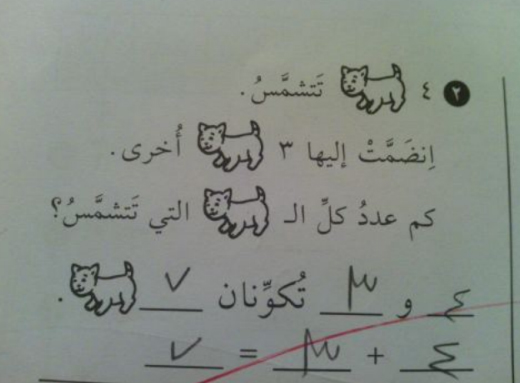 ٢ ٤ تَتشمَّسُ.
اِنضَمَّتْ إليها ٣ أُخرى.
كم عددُ كلِّ الـ التي تَتشمَّسُ؟
٤ و ٣ تُكوِّنان ٧.
٤ + ٣ = ٧